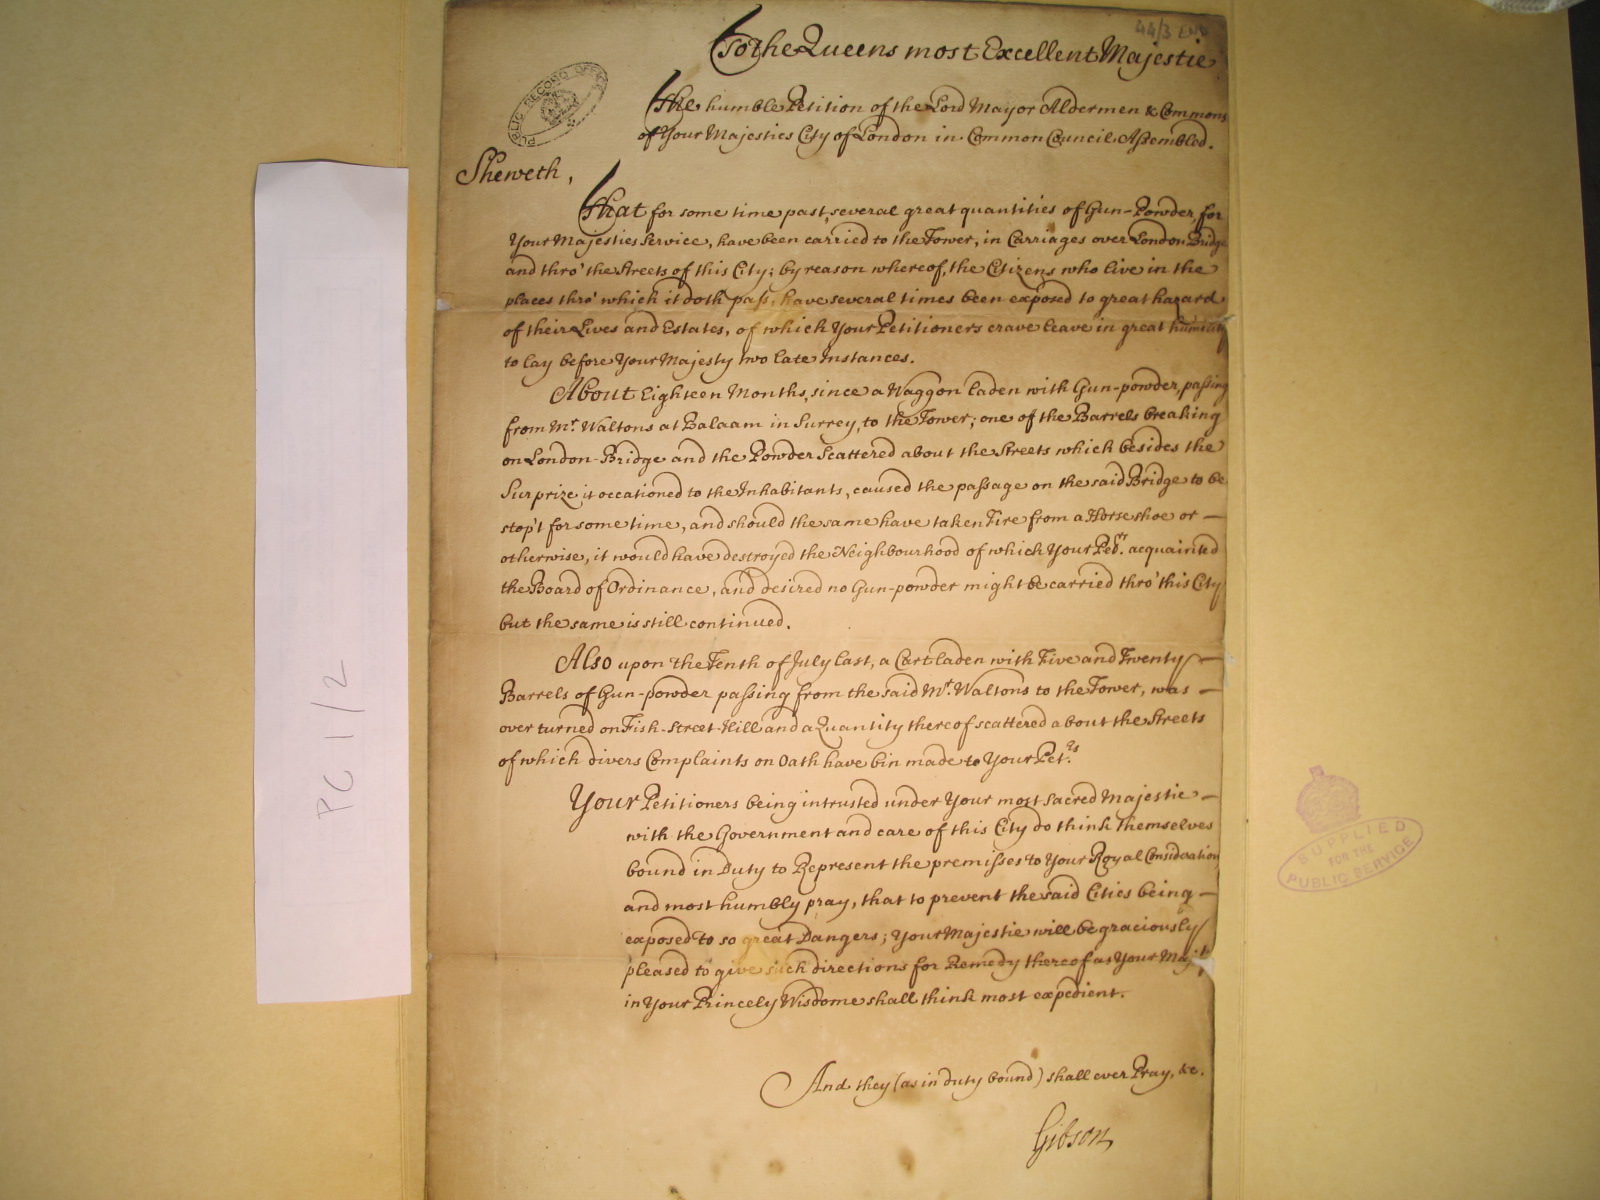 44/3 END
To the Queens most Excellent Majestie
PUBLIC RECORD OFFICE
The humble Petition of the Lord Mayor Aldermen & Commons
of Your Majesties City of London in Common Council Assembled.
Sheweth,
That for some time past, several great quantities of Gun-Powder, for
Your Majesties Service, have been carried to the Tower, in Carriages over London Bridge
and thro' the Streets of this City; by reason whereof, the Citizens who live in the
places thro' which it doth pass, have several times been exposed to great hazard
of their Lives and Estates, of which Your Petitioners crave leave in great humility
to lay before Your Majesty two late Instances.
About Eighteen Months, since a Waggon laden with Gun-powder, passing
from Mr. Waltons at Balaam in Surrey, to the Tower; one of the Barrels breaking
on London-Bridge and the Powder Scattered about the Streets which besides the
Surprize it occationed to the Inhabitants, caused the passage on the said Bridge to be
stop't for some time, and should the same have taken Fire from a Horse shoe or —
otherwise, it would have destroyed the Neighbourhood of which Your Petrs. acquainted
the Board of Ordinance, and desired no Gun-powder might be carried thro' this City
but the same is still continued.
Also upon the Tenth of July last, a Cart laden with Five and Twenty —
Barrels of Gun-powder passing from the said Mr. Waltons to the Tower, was —
over turned on Fish-Street-Hill and a Quantity thereof scattered about the Streets
of which divers Complaints on Oath have bin made to Your Petrs.
Your Petitioners being intrusted under Your most Sacred Majestie —
with the Government and care of this City do think themselves
bound in Duty to Represent the premisses to Your Royal Consideration
and most humbly pray, that to prevent the said Cities being —
exposed to so great Dangers; Your Majestie will be graciously
pleased to give such directions for Remedy thereof as Your Majt
in Your Princely Wisdome shall think most expedient.
And they (as in duty bound) shall ever Pray, &c.
Gibson
PC 1/2
SUPPLIED
FOR THE
PUBLIC SERVICE